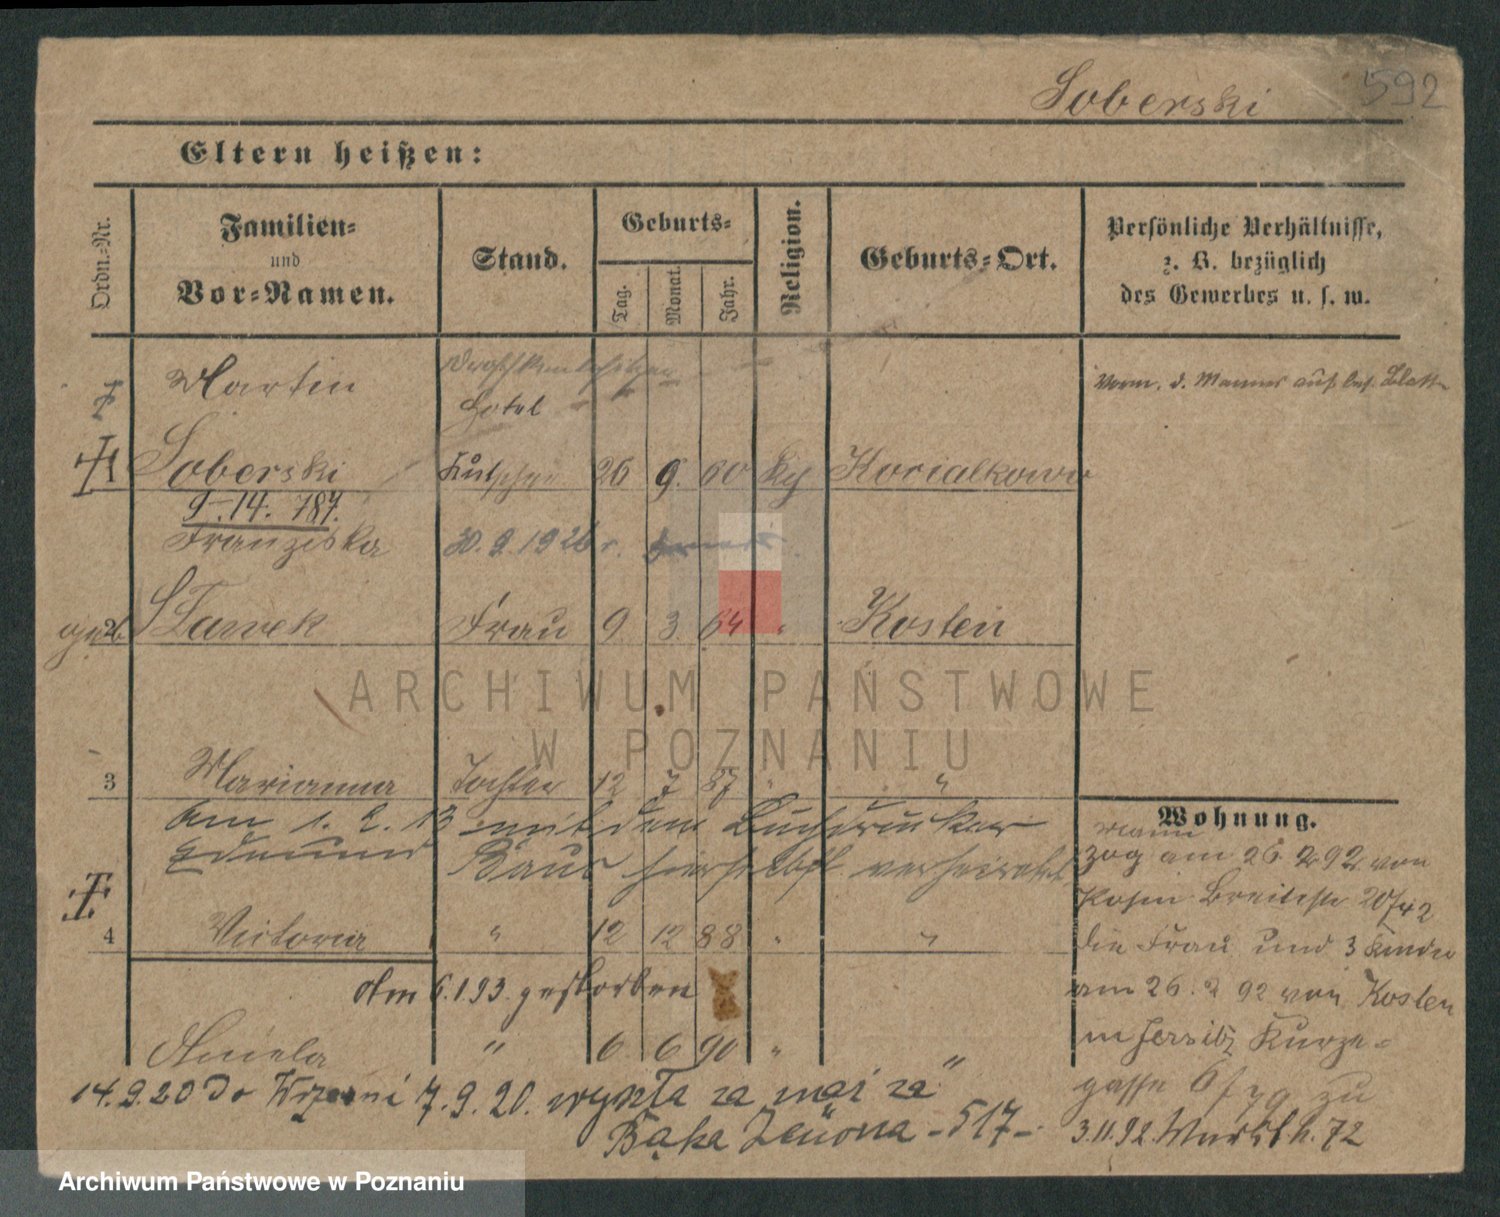 592
Soberski
Eltern heißen:
Ordn.-Nr.
Familien-
und
Vor-Namen.
Stand.
Geburts-
Tag.
Monat.
Jahr.
Religion.
Geburts-Ort.
Persönliche Verhältnisse,
z. B. bezüglich
des Gewerbes u. s. w.
Martin
Hotel
1 Soberski Kutscher 26 9. 60
9.-14. 787.
Franziska 30.9.1926 r.
geb.
2 Sławek Frau 9 3. 64 " Kosten
ARCHIWUM PAŃSTWOWE
W POZNANIU
3 Marianna Tochter 12 7 87 " "
am 1. 2. 13 mit dem Buchdrucker
Edmund hierselbst verheiratet
4 Victoria " 12 12 88 " "
Am 6.1.93. gestorben
Aniela " 6. 6 90 " "
14.9.20 do Wrześni 7.9.20. wyszła za mąż za
Bąka Zenona -517-
Wohnung.
Mann
zog am 26 2 92 von
Posen Breitestr 20/42
die Frau und 3 Kinder
am 26. 2 92 von Kosten
in Jersitz Kurze-
gasse 6/79 zu
3.11.92. 72
Archiwum Państwowe w Poznaniu